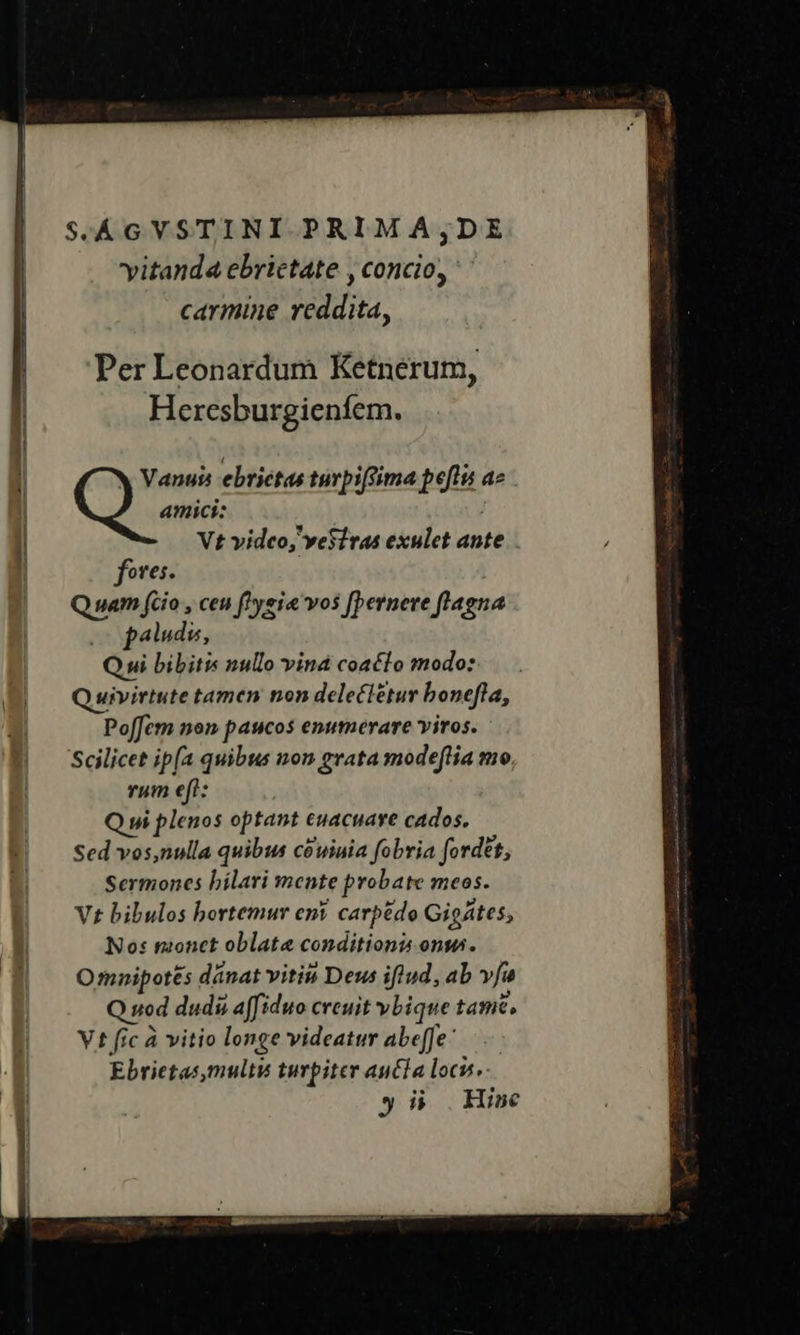 S. AGVSTINI PRIMA, DE
vitanda ebrietate, concio,
carmine reddita,
Per Leonardum Ketnerum,
Heresburgienſem.
QVanuis ebrietas turpiſsima peſtis ac
amici:
Vt video, vestras exulet ante
fores.
Quam ſcio, ceu ſtygiæ vos ſpernere ſtagna
paludis,
Qui bibitis nullo vina coacto modo:
Qui virtute tamen non delectētur honeſta,
Poſſem non paucos enumerare viros.
Scilicet ipſa quibus non grata modeſtia mo,
rum eſt:
Qui plenos optant euacuare cados.
Sed vos, nulla quibus cōuiuia ſobria ſordēt,
Sermones hilari mente probate meos.
Vt bibulos hortemur eni carpēdo Gigātes,
Nos monet oblatæ conditionis onus.
Omnipotēs dānat vitiū Deus iſtud, ab vſu
Quod dudū aſſiduo creuit vbique tamē.
Vt ſic à vitio longe videatur abeſſe
Ebrietas, multis turpiter aucta locis.
y ij Hinc